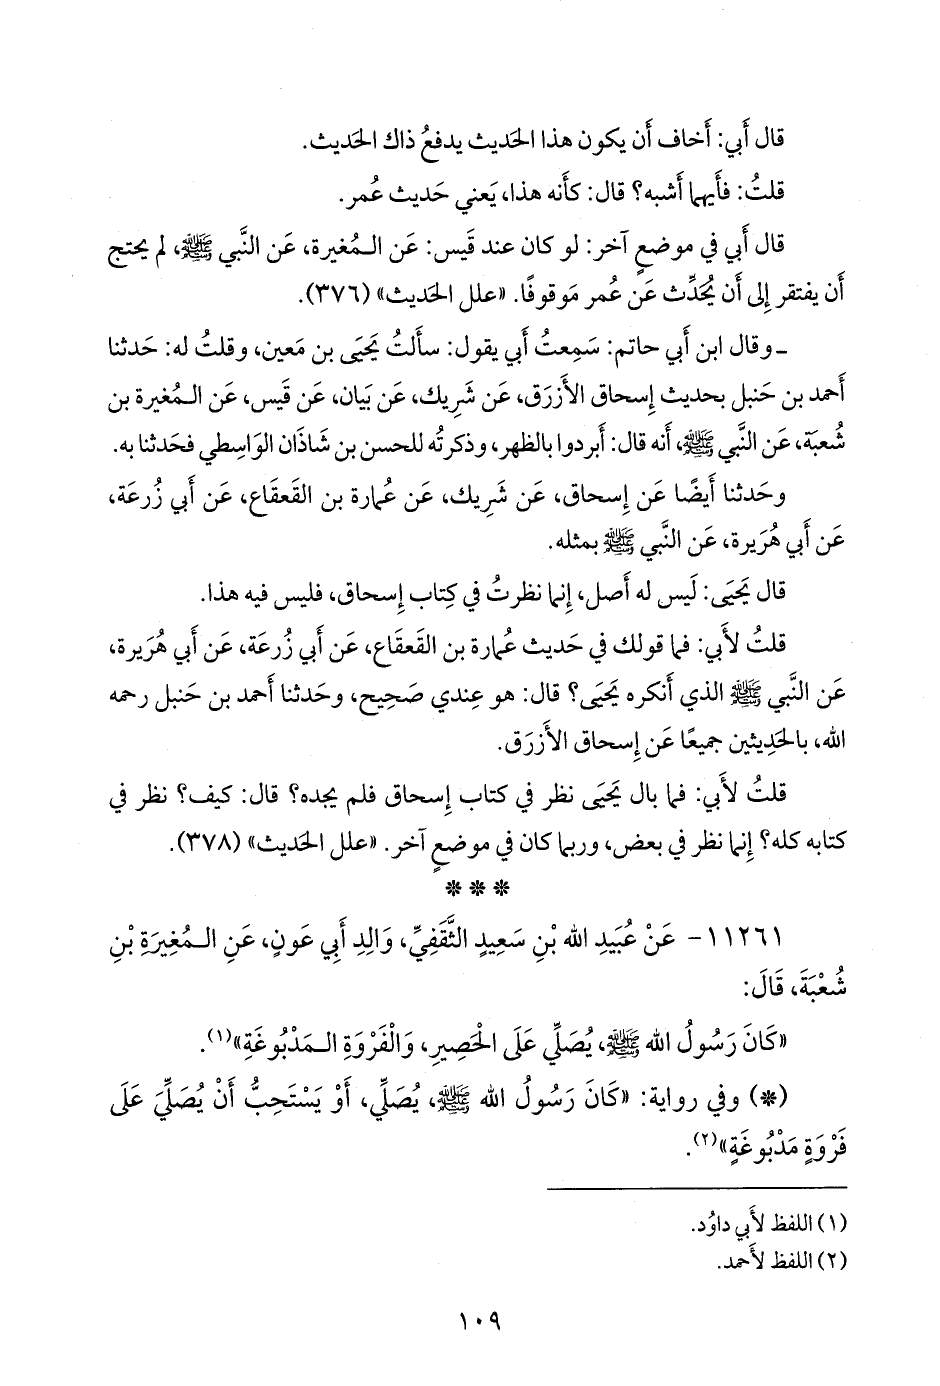 قال أَبي: أَخاف أَن يكون هذا الحَديث يدفعُ ذاك الحَديث.
قلتُ: فأَيهما أَشبه؟ قال: كأَنه هذا، يَعني حَديث عُمر.
قال أَبي في موضعٍ آخر: لو كان عند قَيس: عَن الـمُغيرة، عَن النَّبي ﷺ، لم يحتج
أَن يفتقر إِلى أَن يُحَدِّث عَن عُمر مَوقوفًا. «علل الحَديث» (٣٧٦).
ـ وقال ابن أَبي حاتم: سَمِعتُ أَبي يقول: سأَلتُ يَحيَى بن مَعين، وقلتُ له: حَدثنا
أَحمد بن حَنبل بحديث إِسحاق الأَزرَق، عَن شَرِيك، عَن بَيان، عَن قَيس، عَن الـمُغيرة بن
شُعبَة، عَن النَّبي ﷺ، أَنه قال: أَبردوا بالظهر، وذكرتُه للحسن بن شاذَان الوَاسِطي فحَدثنا به.
وحَدثنا أَيضًا عَن إِسحاق، عَن شَرِيك، عَن عُمارة بن القَعقَاع، عَن أَبي زُرعَة،
عَن أَبي هُرَيرة، عَن النَّبي ﷺ بمثله.
قال يَحيَى: لَيس له أَصل، إِنما نظرتُ في كِتاب إِسحاق، فليس فيه هذا.
قلتُ لأَبي: فما قولك في حَديث عُمارة بن القَعقَاع، عَن أَبي زُرعَة، عَن أَبي هُرَيرة،
عَن النَّبي ﷺ الذي أَنكره يَحيَى؟ قال: هو عِندي صَحِيح، وحَدثنا أَحمد بن حَنبل رحمه
الله، بالحَدِيثين جميعًا عَن إِسحاق الأَزرَق.
قلتُ لأَبي: فما بال يَحيَى نظر في كتاب إِسحاق فلم يجده؟ قال: كيف؟ نظر في
كتابه كله؟ إِنما نظر في بعض، وربما كان في موضعٍ آخر. «علل الحَديث» (٣٧٨).
* * *
١١٢٦١- عَنْ عُبَيدِ الله بْنِ سَعِيدٍ الثَّقَفِيِّ، وَالِدِ أَبِي عَونٍ، عَنِ الـمُغِيرَةِ بْنِ
شُعْبَةَ، قَالَ:
«كَانَ رَسُولُ الله ﷺ، يُصَلِّي عَلَى الْحَصِيرِ، وَالْفَرْوَةِ الـمَدْبُوغَةِ»(١).
(*) وفي رواية: «كَانَ رَسُولُ الله ﷺ، يُصَلِّي، أَوْ يَسْتَحِبُّ أَنْ يُصَلِّيَ عَلَى
فَرْوَةٍ مَدْبُوغَةٍ»(٢).
(١) اللفظ لأَبي داوُد.
(٢) اللفظ لأَحمد.
١٠٩